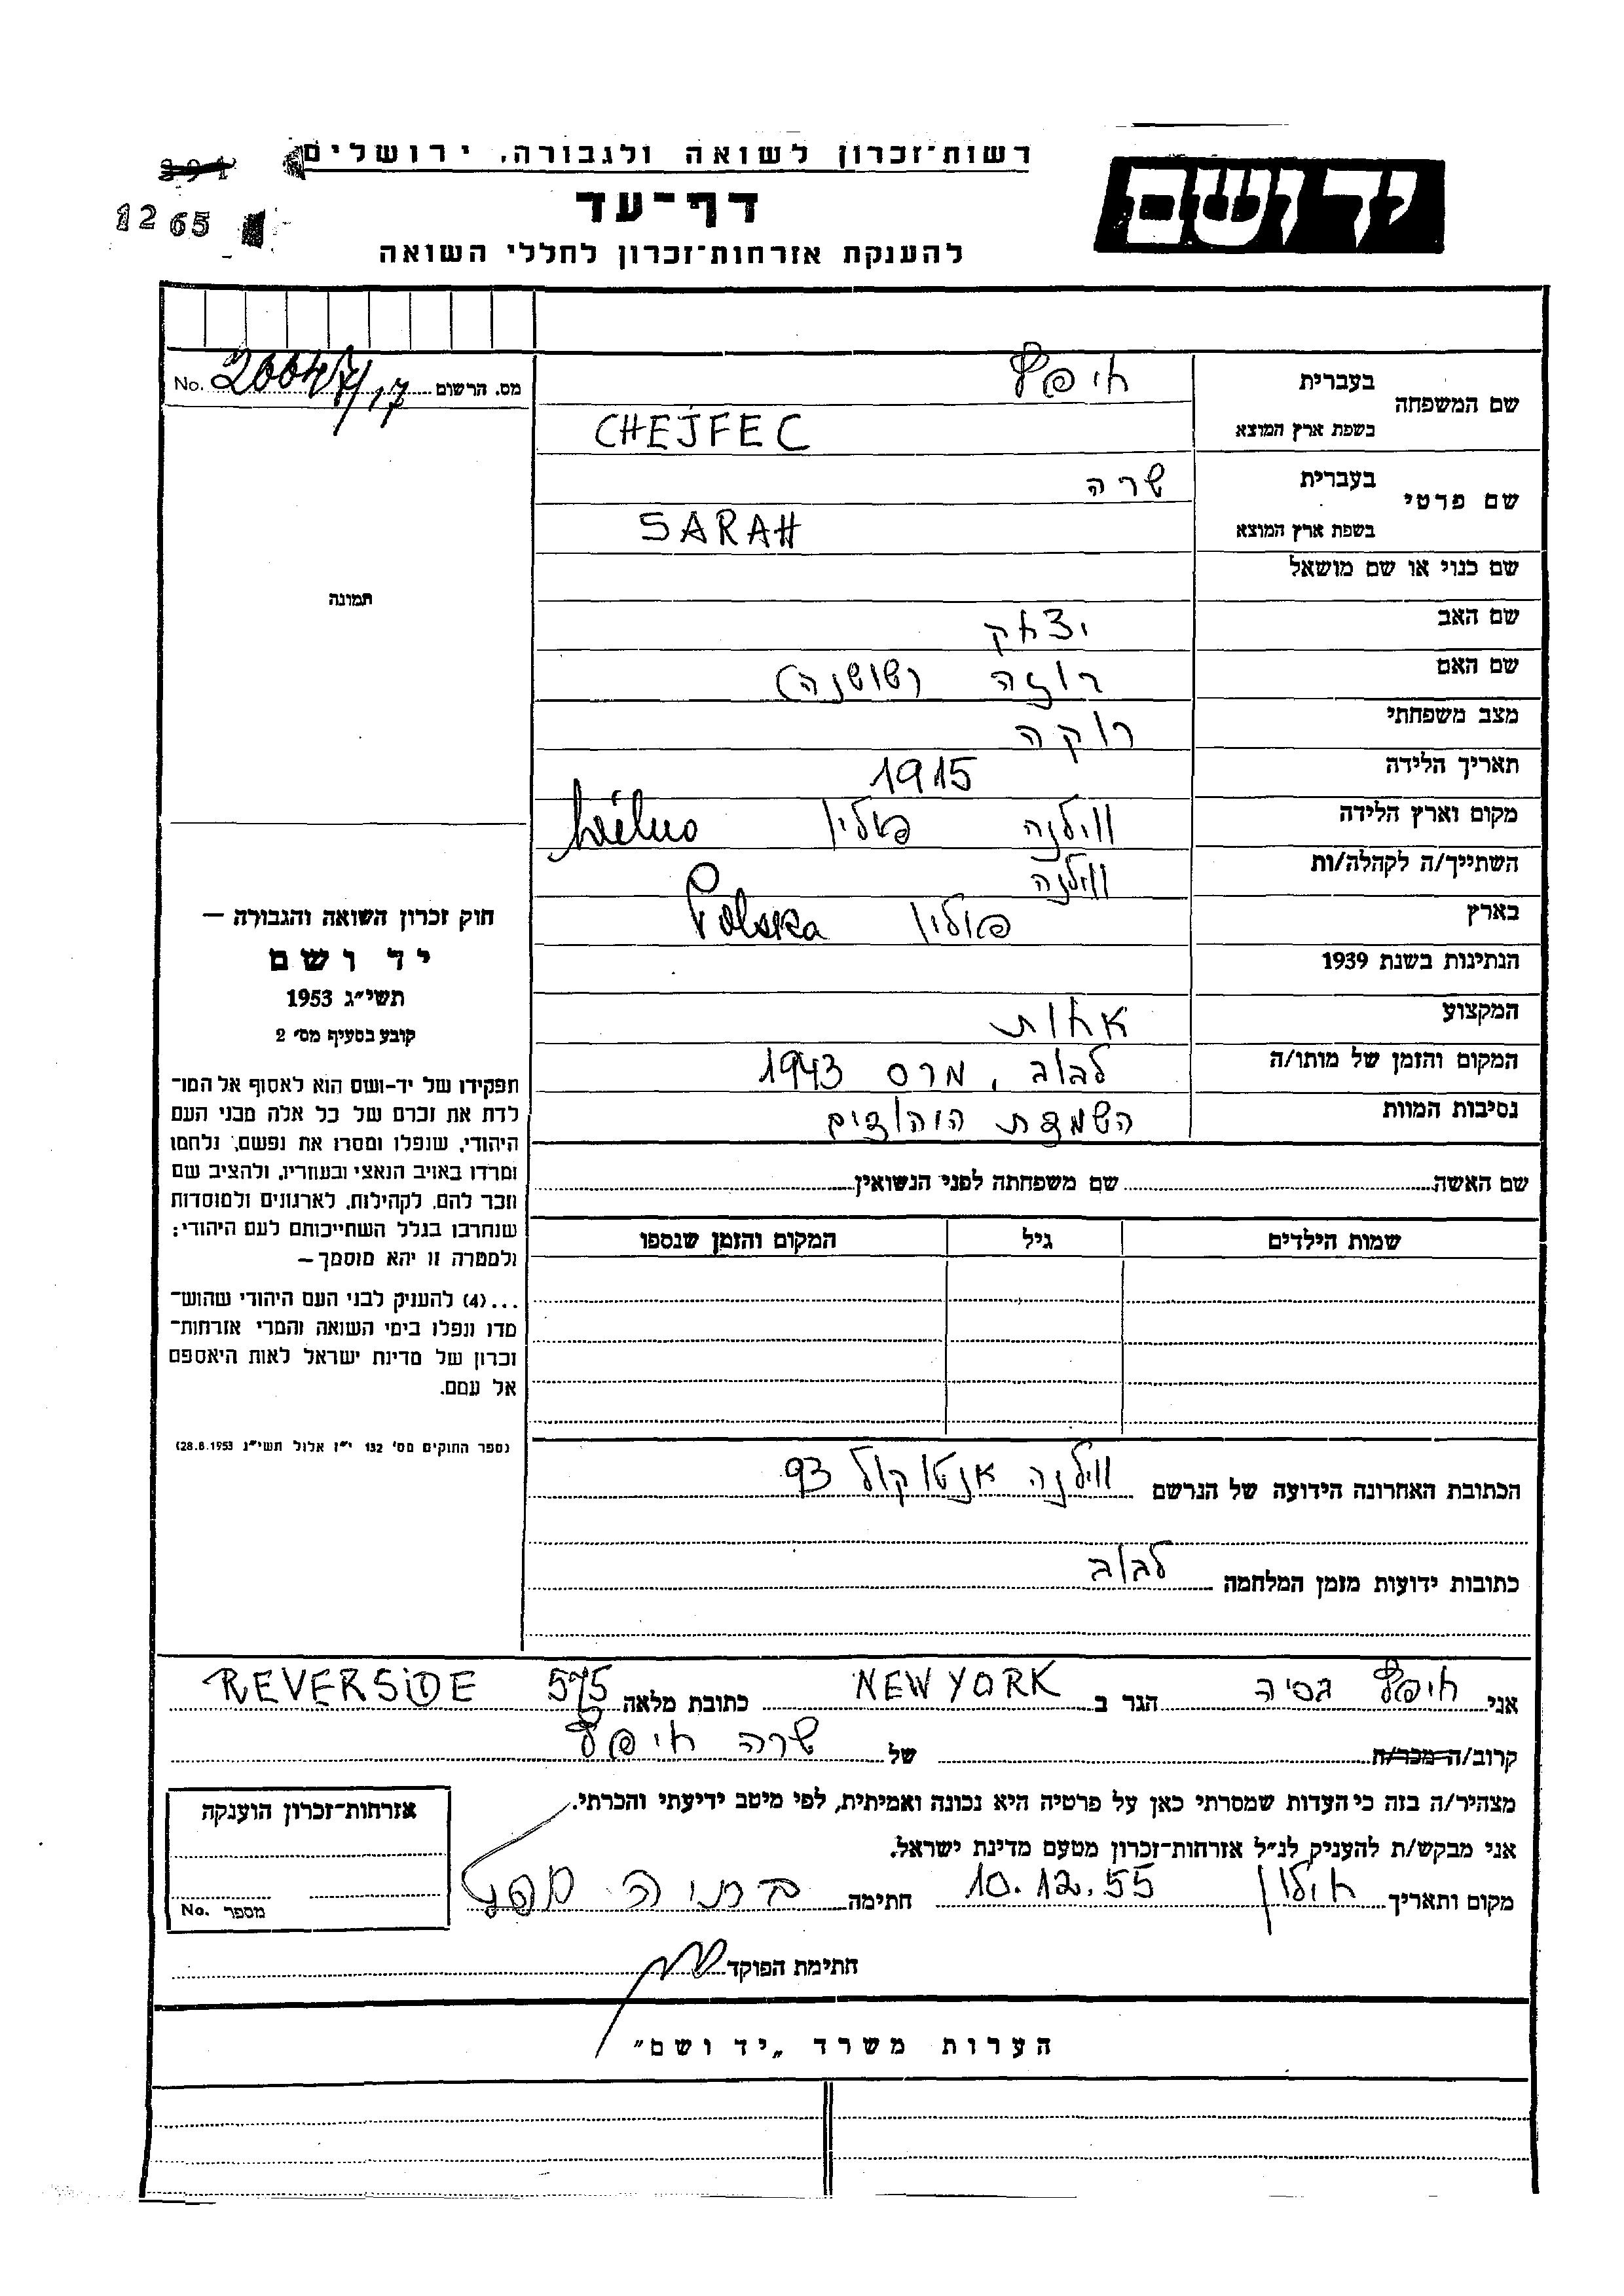 רשות־זכרון לשואה ולגבורה, ירושלים
1265
ידושם
דף־עד
להענקת אזרחות־זכרון לחללי השואה
No. מס. הרשום
שם המשפחה
בעברית חיפץ
בשפת ארץ המוצא CHEJFEC
שם פרטי
בעברית שרה
בשפת ארץ המוצא SARAH
שם כנוי או שם מושאל
שם האב יצחק
שם האם רוזה (שושנה)
מצב משפחתי רוקה
תאריך הלידה 1915
מקום וארץ הלידה ווילנה פולין Wilno
השתייך/ה לקהלה/ות ווילנה
בארץ פולין Polska
הנתינות בשנת 1939
המקצוע אחות
המקום והזמן של מותו/ה לבוב, מרס 1943
נסיבות המוות השמדת היהודים
שם האשה שם משפחתה לפני הנשואין
שמות הילדים גיל המקום והזמן שנספו
תמונה
חוק זכרון השואה והגבורה —
יד ושם
תשי״ג 1953
קובע בסעיף מס׳ 2
תפקידו של יד-ושם הוא לאסוף אל המו־
לדת את זכרם של כל אלה מבני העם
היהודי, שנפלו ומסרו את נפשם, נלחמו
ומרדו באויב הנאצי ובעוזריו, ולהציב שם
וזכר להם, לקהילות, לארגונים ולמוסדות
שנחרבו בגלל השתייכותם לעם היהודי;
ולמטרה זו יהא מוסמך —
...(4) להעניק לבני העם היהודי שהוש־
מדו ונפלו בימי השואה והמרי אזרחות־
זכרון של מדינת ישראל לאות היאספם
אל עמם.
(ספר החוקים מס׳ 132 י״ז אלול תשי״ג 28.8.1953)
הכתובת האחרונה הידועה של הנרשם ווילנה אנטוקול 93
כתובות ידועות מזמן המלחמה לבוב
אני חיפץ גסיה הגר ב NEW YORK כתובת מלאה 575 REVERSIDE
קרוב/ה מכר/ת של שרה חיפץ
מצהיר/ה בזה כי העדות שמסרתי כאן על פרטיה היא נכונה ואמיתית, לפי מיטב ידיעתי והכרתי.
אני מבקש/ת להעניק לנ״ל אזרחות־זכרון מטעם מדינת ישראל.
מקום ותאריך חולון 10.12.55 חתימה
חתימת הפוקד
אזרחות־זכרון הוענקה
No. מספר
הערות משרד „יד ושם״